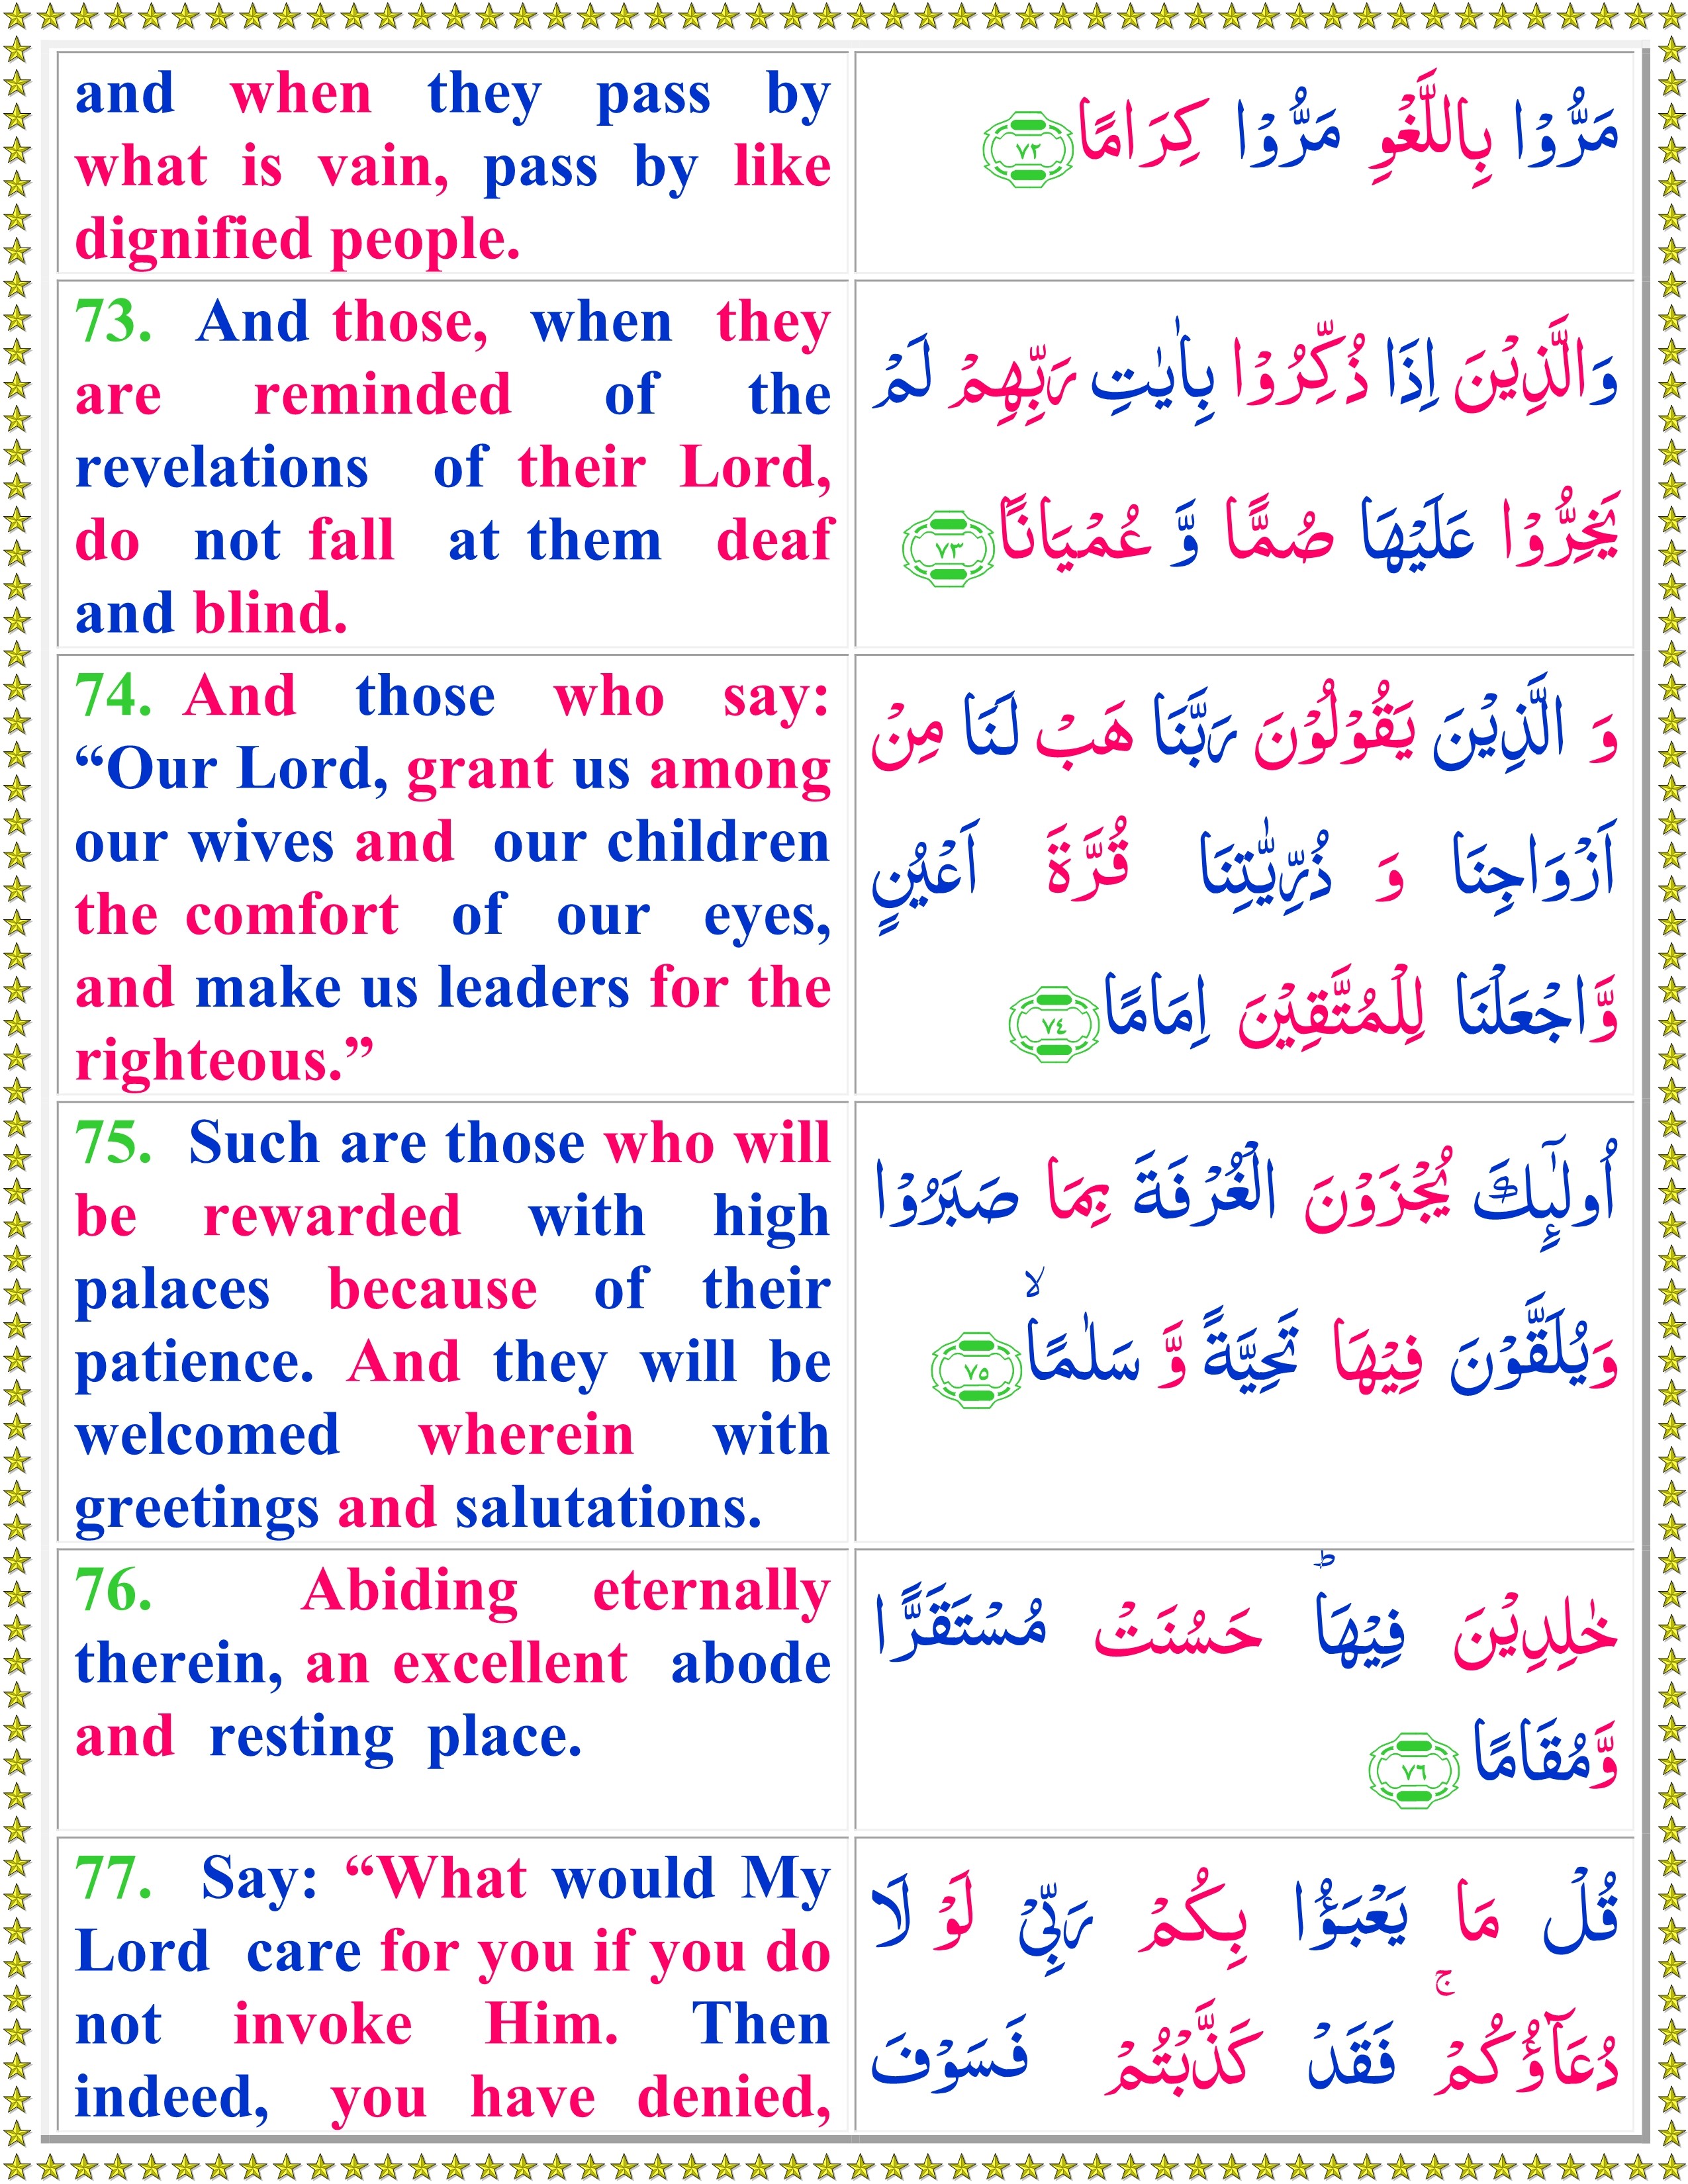 and when they pass by
what is vain, pass by like
dignified people.
مَرُّوْا بِاللَّغْوِ مَرُّوْا كِرَامًا ﴿٧٢﴾
73. And those, when they
are reminded of the
revelations of their Lord,
do not fall at them deaf
and blind.
وَالَّذِيْنَ اِذَا ذُكِّرُوْا بِاٰيٰتِ رَبِّهِمْ لَمْ
يَخِرُّوْا عَلَيْهَا صُمًّا وَّ عُمْيَانًا ﴿٧٣﴾
74. And those who say:
“Our Lord, grant us among
our wives and our children
the comfort of our eyes,
and make us leaders for the
righteous.”
وَ الَّذِيْنَ يَقُوْلُوْنَ رَبَّنَا هَبْ لَنَا مِنْ
اَزْوَاجِنَا وَ ذُرِّيّٰتِنَا قُرَّةَ اَعْيُنٍ
وَّاجْعَلْنَا لِلْمُتَّقِيْنَ اِمَامًا ﴿٧٤﴾
75. Such are those who will
be rewarded with high
palaces because of their
patience. And they will be
welcomed wherein with
greetings and salutations.
اُولٰٓٮِٕكَ يُجْزَوْنَ الْغُرْفَةَ بِمَا صَبَرُوْا
وَيُلَقَّوْنَ فِيْهَا تَحِيَّةً وَّ سَلٰمًا ۙ ﴿٧٥﴾
76. Abiding eternally
therein, an excellent abode
and resting place.
خٰلِدِيْنَ فِيْهَا ؕ حَسُنَتْ مُسْتَقَرًّا
وَّمُقَامًا ﴿٧٦﴾
77. Say: “What would My
Lord care for you if you do
not invoke Him. Then
indeed, you have denied,
قُلْ مَا يَعْبَؤُا بِكُمْ رَبِّىْ لَوْ لَا
دُعَآؤُكُمْ ۚ فَقَدْ كَذَّبْتُمْ فَسَوْفَ